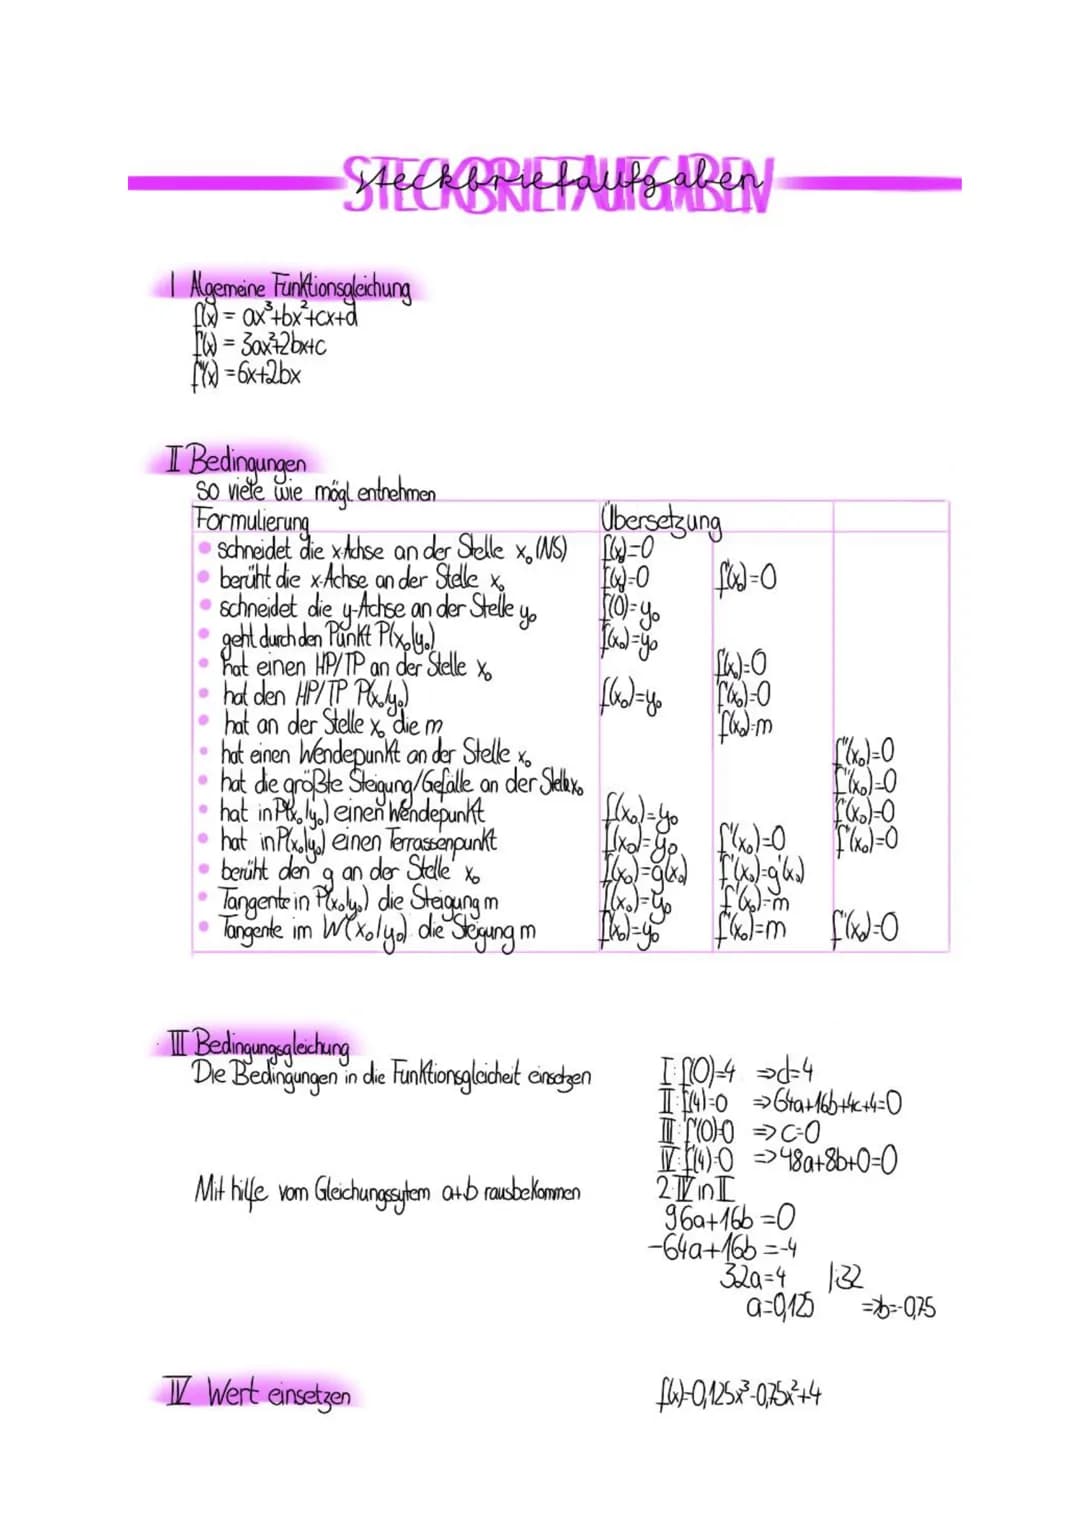 STECKBRIEFAUFGABEN
steckbriefaufgaben
I Algemeine Funktionsgleichung
f(x) = ax³+bx²+cx+d
f'(x) = 3ax²+2bx+c
f"(x) = 6x+2bx
II Bedingungen
so viele wie mögl. entnehmen
Formulierung Übersetzung
• schneidet die x-Achse an der Stelle x₀ (NS) f(x)=0
• berüht die x-Achse an der Stelle x₀ f(x)=0 f'(x₀)=0
• schneidet die y-Achse an der Stelle y₀ f(0)=y₀
• geht durch den Punkt P(x₀|y₀) f(x₀)=y₀
• hat einen HP/TP an der Stelle x₀ f'(x₀)=0
• hat den HP/TP P(x₀|y₀) f(x₀)=y₀ f'(x₀)=0
• hat an der Stelle x₀ die m f'(x₀)=m
• hat einen Wendepunkt an der Stelle x₀ f"(x₀)=0
• hat die größte Steigung/Gefälle an der Stelle x₀ f"(x₀)=0
• hat in P(x₀|y₀) einen Wendepunkt f(x₀)=y₀ f"(x₀)=0
• hat in P(x₀|y₀) einen Terrassenpunkt f(x₀)=y₀ f'(x₀)=0 f"(x₀)=0
• berüht den g an der Stelle x₀ f(x₀)=g(x₀) f'(x₀)=g'(x₀)
• Tangente in P(x₀|y₀) die Steigung m f(x₀)=y₀ f'(x₀)=m
• Tangente im W(x₀/y₀) die Steigung m f(x₀)=y₀ f'(x₀)=m f"(x₀)=0
III Bedingungsgleichung
Die Bedingungen in die Funktionsgleicheit einsetzen
I: f(0)=4 ⇒d=4
II: f(4)=0 ⇒64a+16b+4c+4=0
III: f'(0)=0 ⇒ c=0
IV: f'(4)=0 ⇒48a+8b+0=0
Mit hilfe vom Gleichungssytem a+b rausbekommen
2·IV in II
96a+16b =0
-64a+16b =-4
32a=4 |:32
a=0,125 ⇒b=-0,75
IV Wert einsetzen
f(x)=0,125x³-0,75x²+4